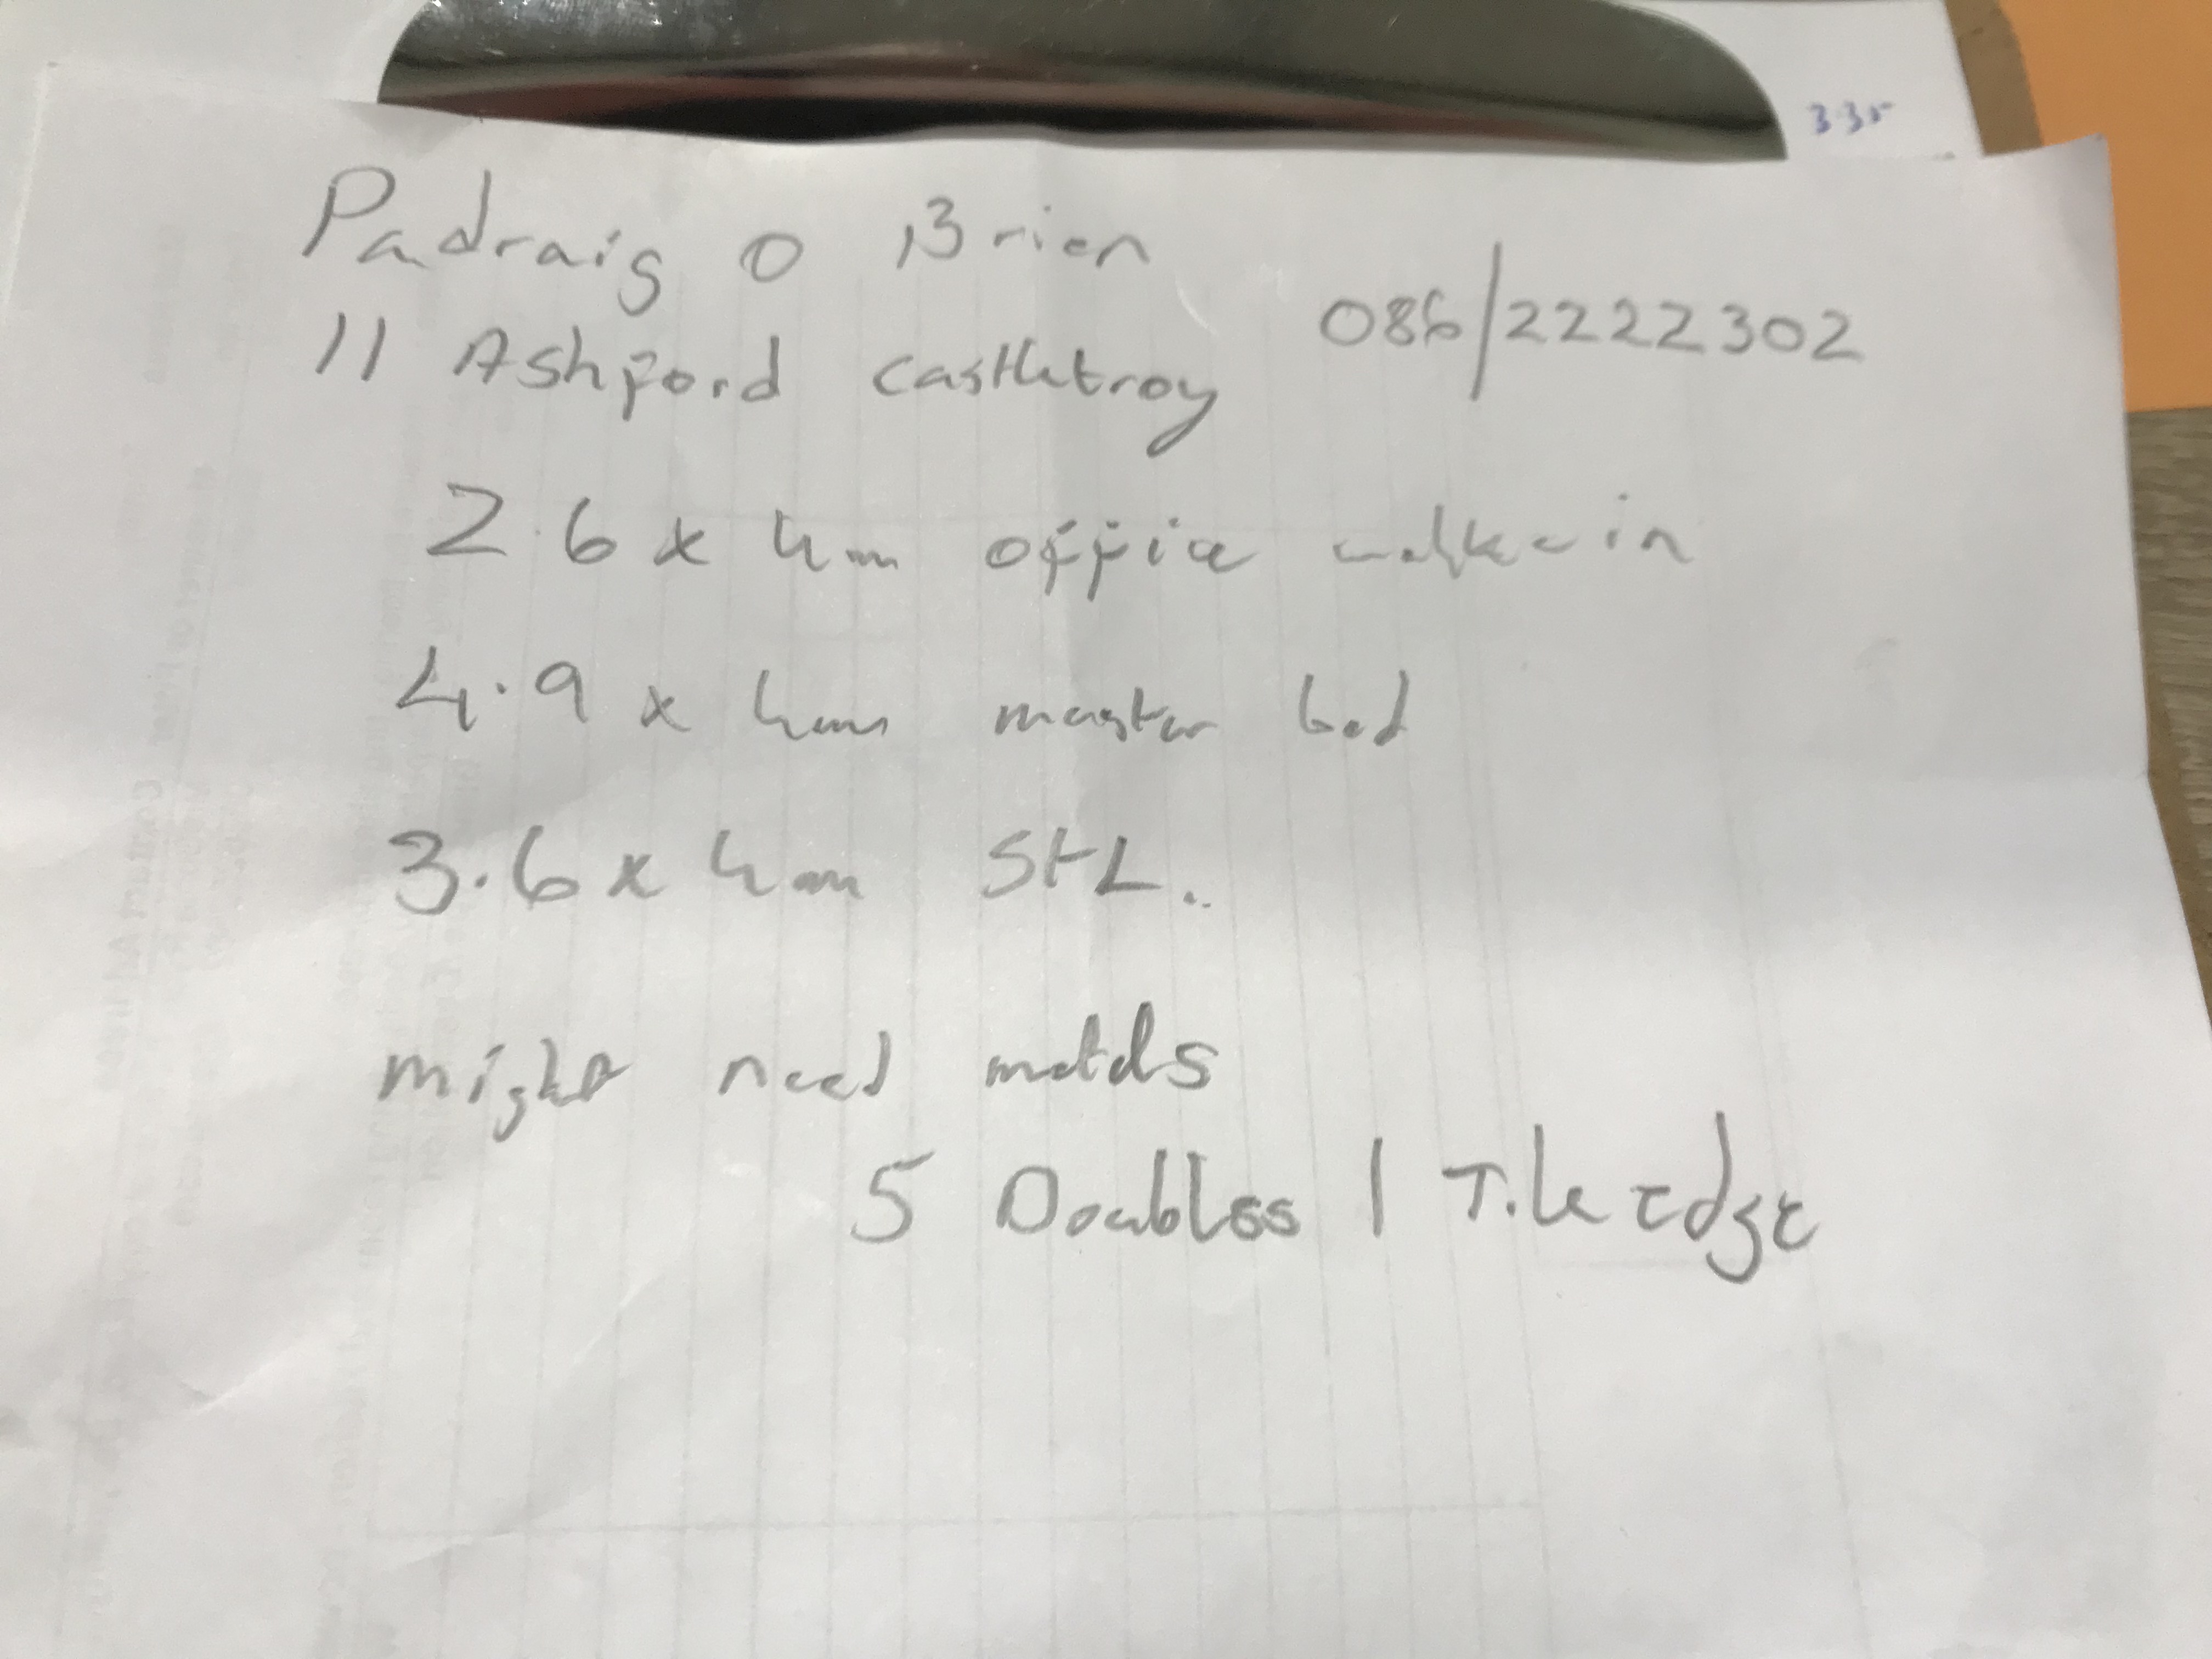 3.35
Padraig O'Brien
086/2222302
11 Ashford Castletroy
2.6 x 4m office walk-in
4.9 x 4m master bed
3.6 x 4m St L..
might need metals
5 Doubles 1 Tile Edge